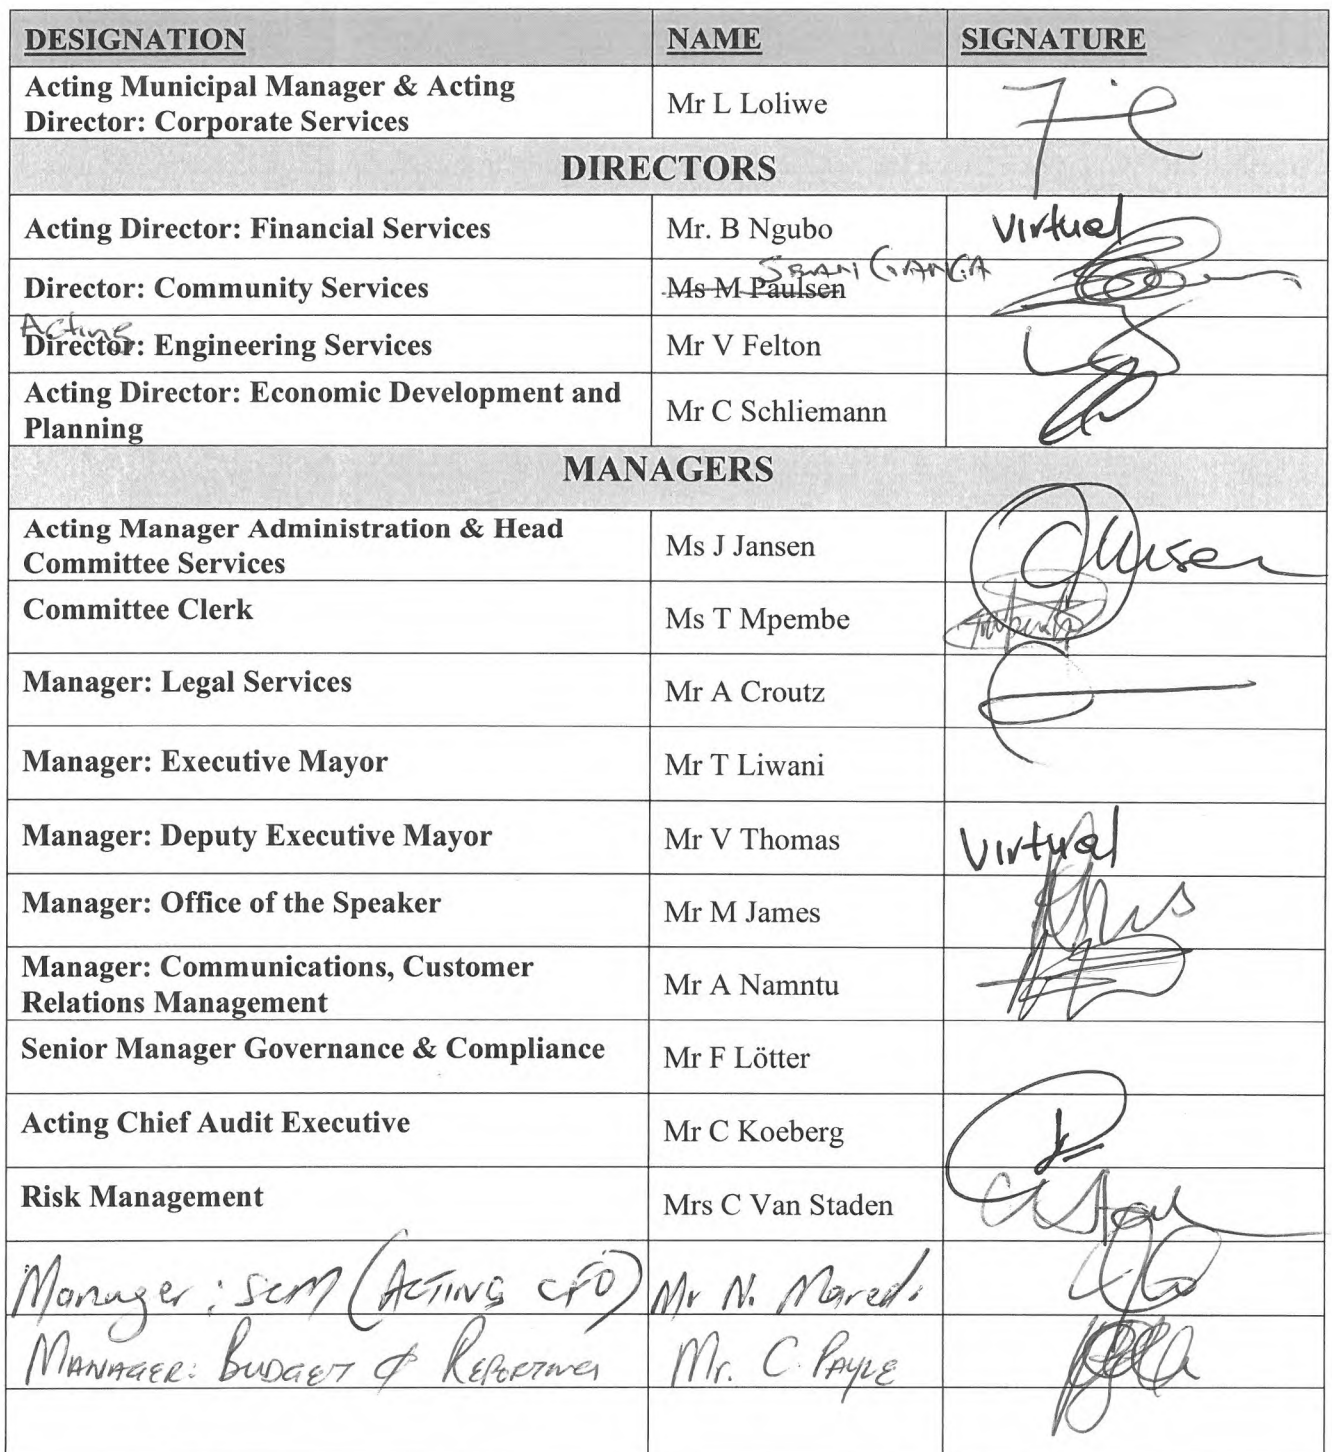 DESIGNATION NAME SIGNATURE
Acting Municipal Manager & Acting
Director: Corporate Services Mr L Loliwe
DIRECTORS
Acting Director: Financial Services Mr. B Ngubo Virtual
Director: Community Services Ms M Paulsen
Acting
Director: Engineering Services Mr V Felton
Acting Director: Economic Development and
Planning Mr C Schliemann
MANAGERS
Acting Manager Administration & Head
Committee Services Ms J Jansen
Committee Clerk Ms T Mpembe
Manager: Legal Services Mr A Croutz
Manager: Executive Mayor Mr T Liwani
Manager: Deputy Executive Mayor Mr V Thomas Virtual
Manager: Office of the Speaker Mr M James
Manager: Communications, Customer
Relations Management Mr A Namntu
Senior Manager Governance & Compliance Mr F Lötter
Acting Chief Audit Executive Mr C Koeberg
Risk Management Mrs C Van Staden
Manager: SCM (ACTING CFO) Mr N. Maredi
MANAGER: BUDGET & REPORTING Mr. C. PAYLE